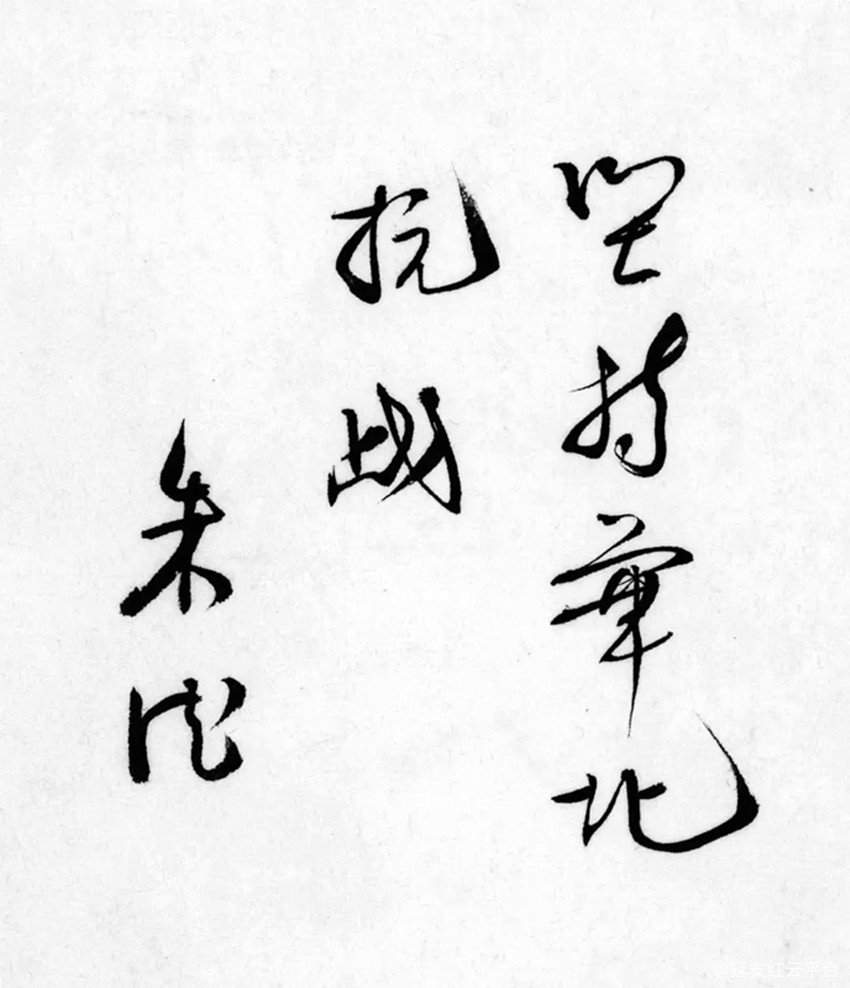 坚持华北
抗战
朱德
@延安红云平台